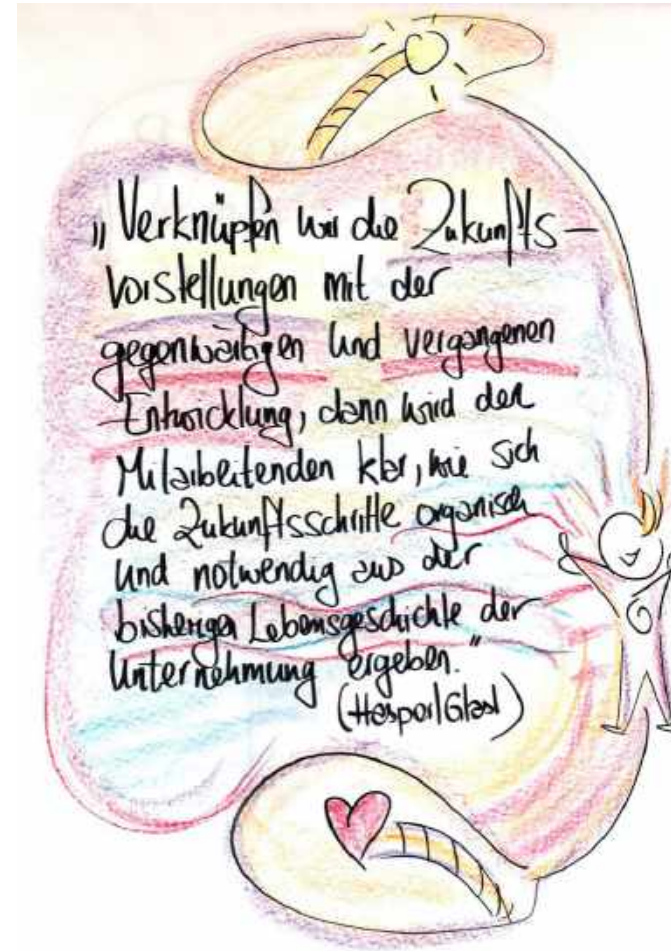 „Verknüpfen wir die Zukunfts-
vorstellungen mit der
gegenwärtigen und vergangenen
Entwicklung, dann wird den
Mitarbeitenden klar, wie sich
die Zukunftsschritte organisch
und notwendig aus der
bisherigen Lebensgeschichte der
Unternehmung ergeben."
(Hasper/Glasl)